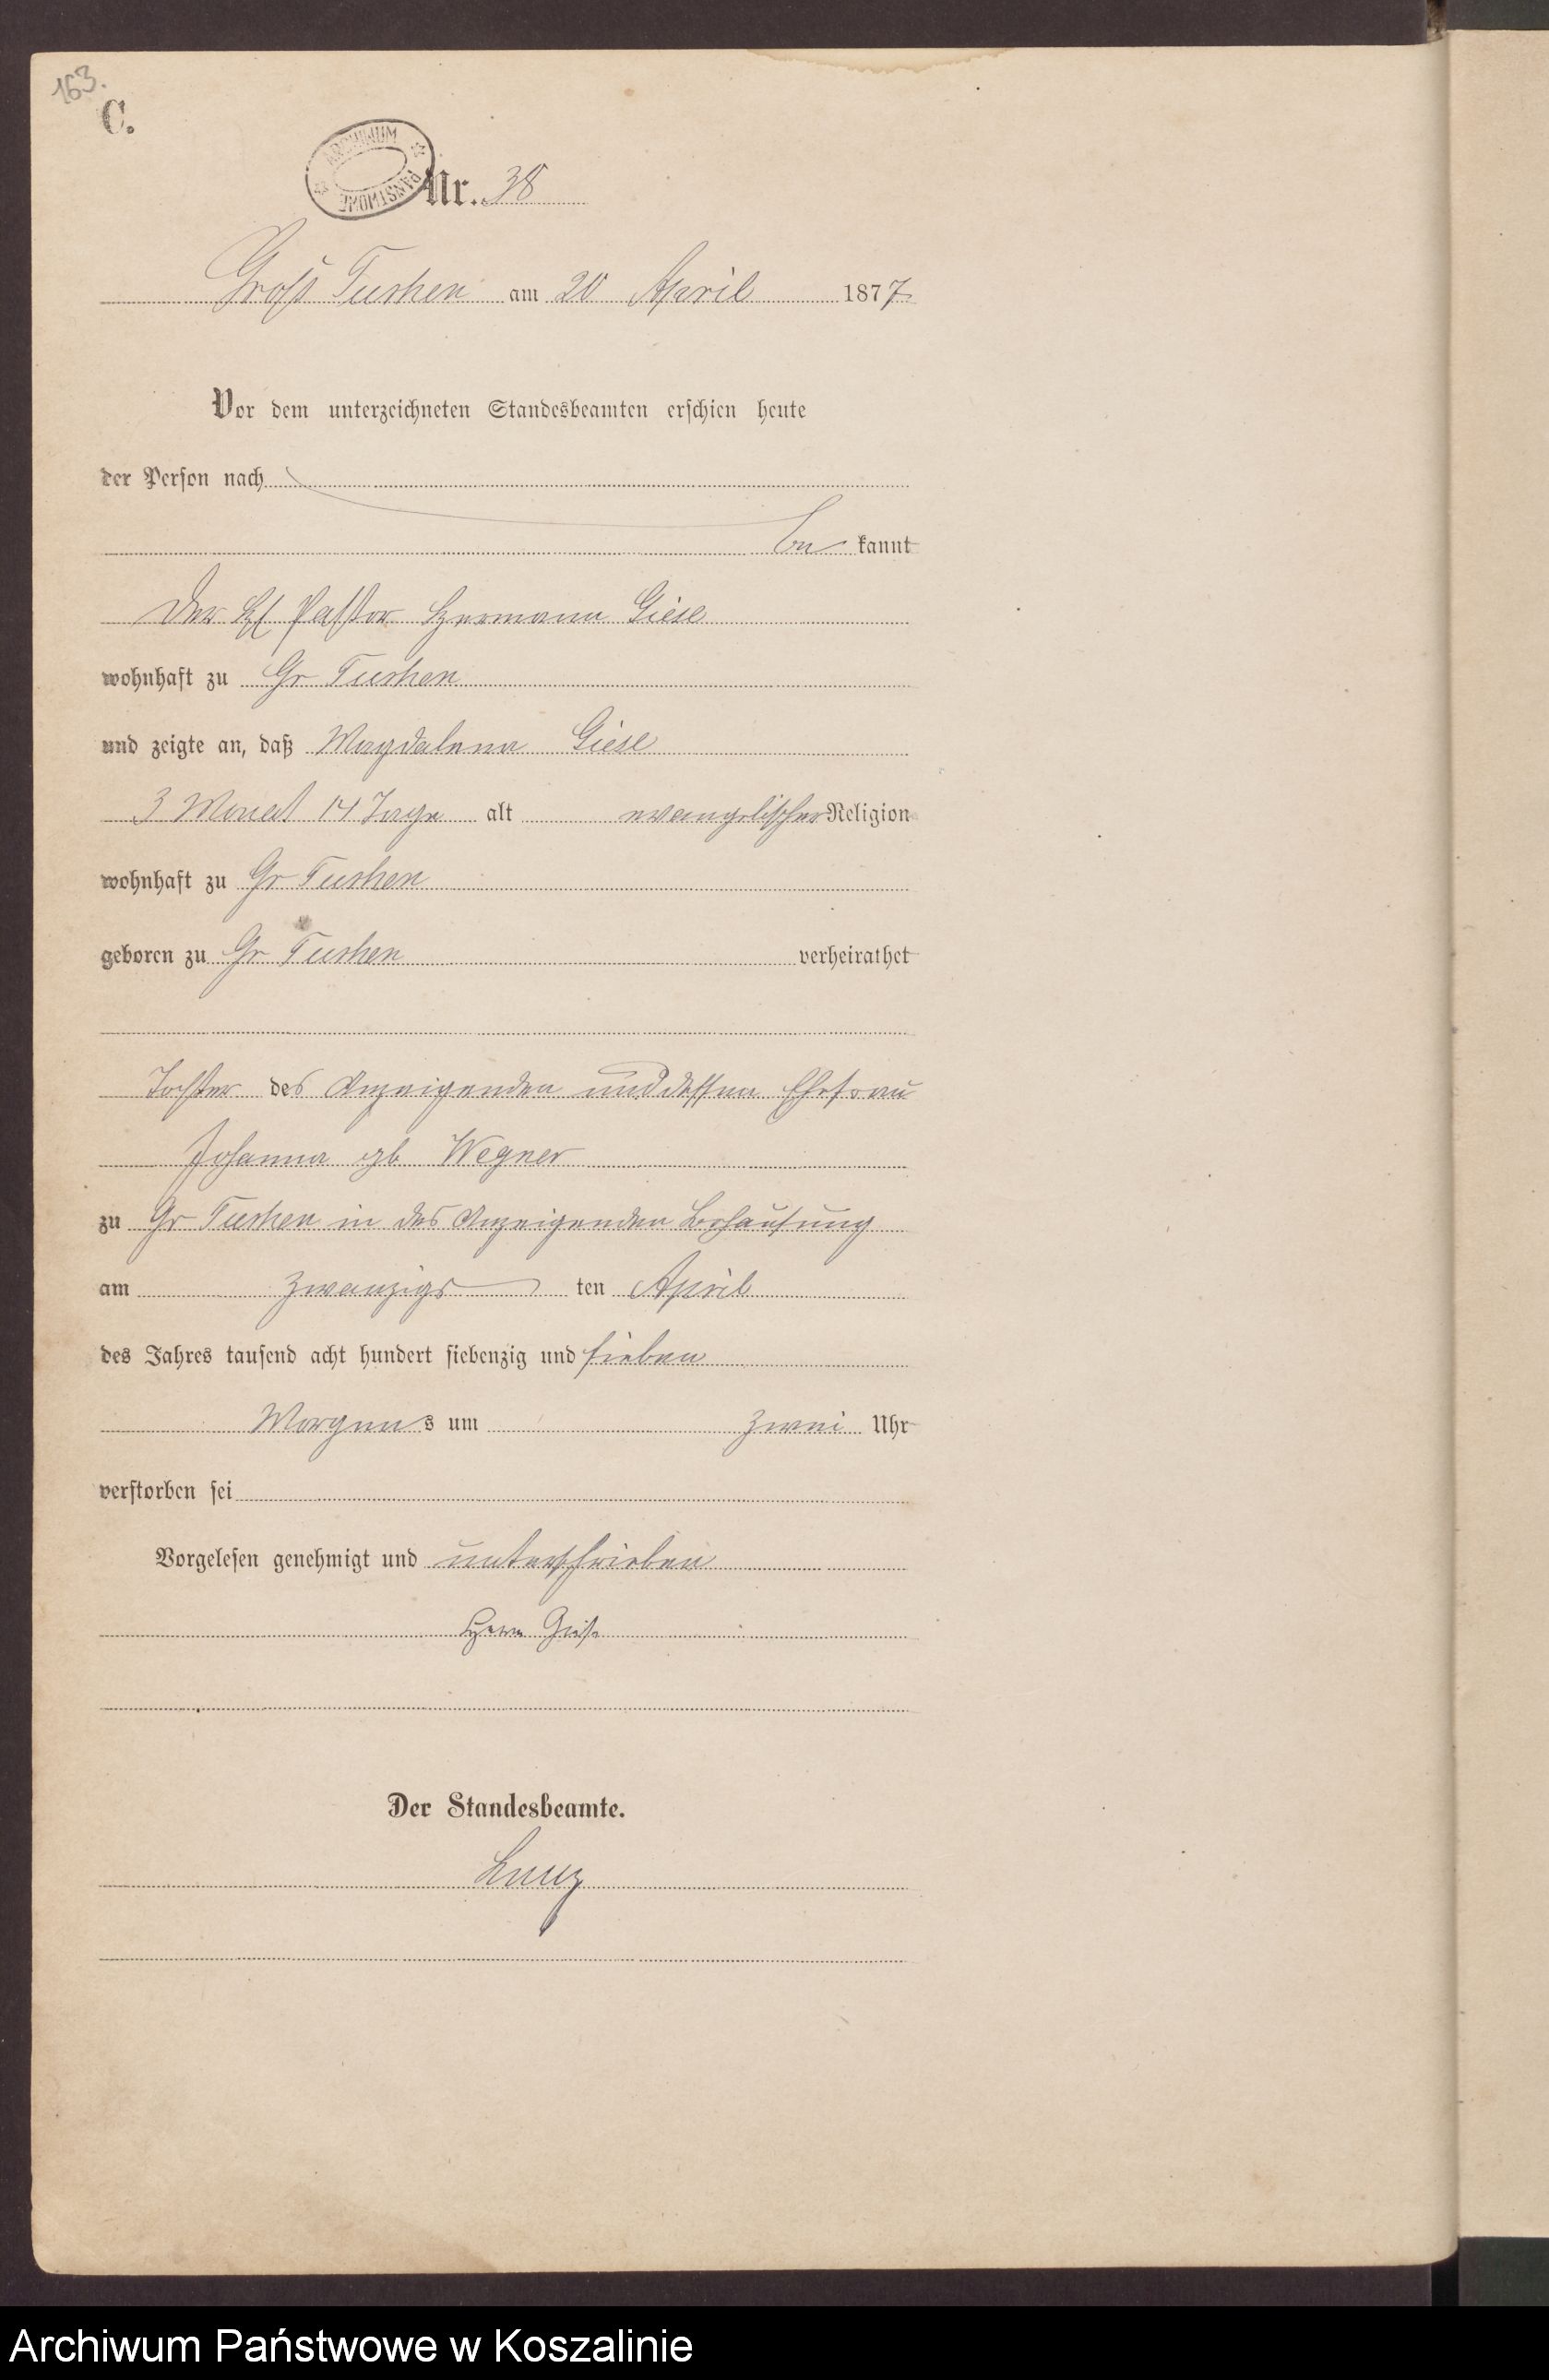 163.
C.
ARCHIWUM PAŃSTWOWE
Nr. 38
Groß Tuchen am 20 April 1877
Vor dem unterzeichneten Standesbeamten erschien heute
der Person nach
be kannt
Der Pastor Hermann Giese
wohnhaft zu Gr Tuchen
und zeigte an, daß Magdalena Giese
3 Monat 14 Tage alt evangelischer Religion
wohnhaft zu Gr Tuchen
geboren zu Gr Tuchen verheirathet
Tochter des Anzeigenden und dessen Ehefrau
Johanna gb Wegner
zu Gr Tuchen in des Anzeigenden Behausung
am zwanzigs ten April
des Jahres tausend acht hundert siebenzig und sieben
Morgens um zwei Uhr
verstorben sei
Vorgelesen genehmigt und unterschrieben
Herm Giese
Der Standesbeamte.
Archiwum Państwowe w Koszalinie